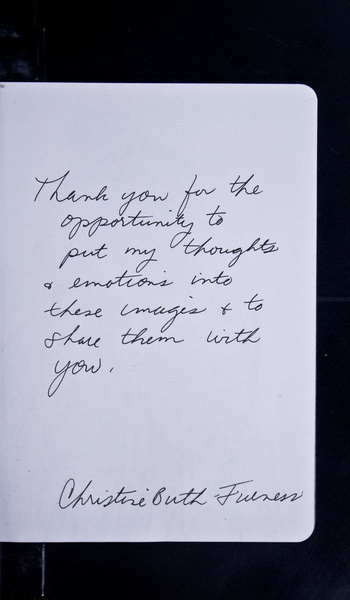 Thank you for the
opportunity to
put my thoughts
& emotions into
these images & to
share them with
you.
Christine Buth Furness